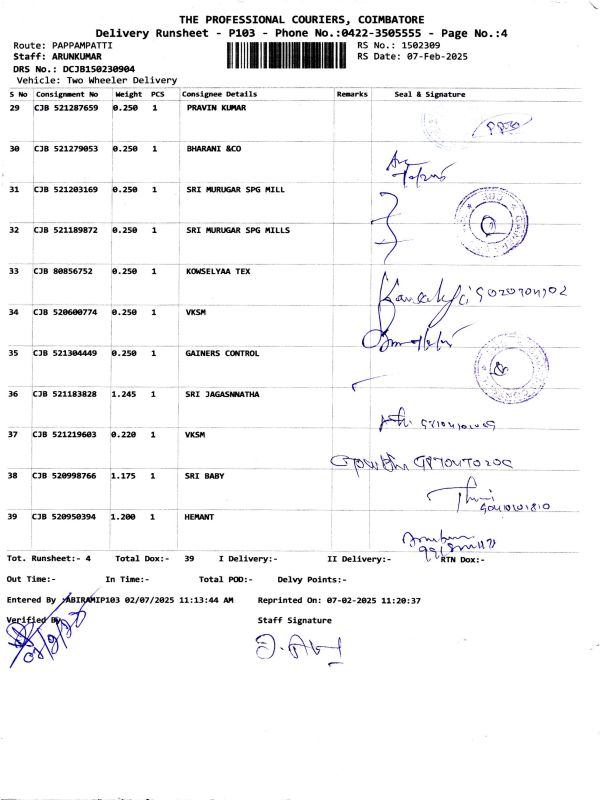 THE PROFESSIONAL COURIERS, COIMBATORE
Delivery Runsheet - P103 - Phone No.:0422-3505555 - Page No.:4
Route: PAPPAMPATTI RS No.: 1502309
Staff: ARUNKUMAR RS Date: 07-Feb-2025
DRS No.: DCJB150230904
Vehicle: Two Wheeler Delivery
S No Consignment No Weight PCS Consignee Details Remarks Seal & Signature
29 CJB 521287659 0.250 1 PRAVIN KUMAR
30 CJB 521279053 0.250 1 BHARANI &CO
31 CJB 521203169 0.250 1 SRI MURUGAR SPG MILL
32 CJB 521189872 0.250 1 SRI MURUGAR SPG MILLS
33 CJB 80856752 0.250 1 KOWSELYAA TEX
34 CJB 520600774 0.250 1 VKSM
35 CJB 521304449 0.250 1 GAINERS CONTROL
36 CJB 521183828 1.245 1 SRI JAGASNNATHA
37 CJB 521219603 0.220 1 VKSM
38 CJB 520998766 1.175 1 SRI BABY
39 CJB 520950394 1.200 1 HEMANT
Tot. Runsheet:- 4 Total Dox:- 39 I Delivery:- II Delivery:- RTN Dox:-
Out Time:- In Time:- Total POD:- Delvy Points:-
Entered By :ABIRAMIP103 02/07/2025 11:13:44 AM Reprinted On: 07-02-2025 11:20:37
Verified By Staff Signature